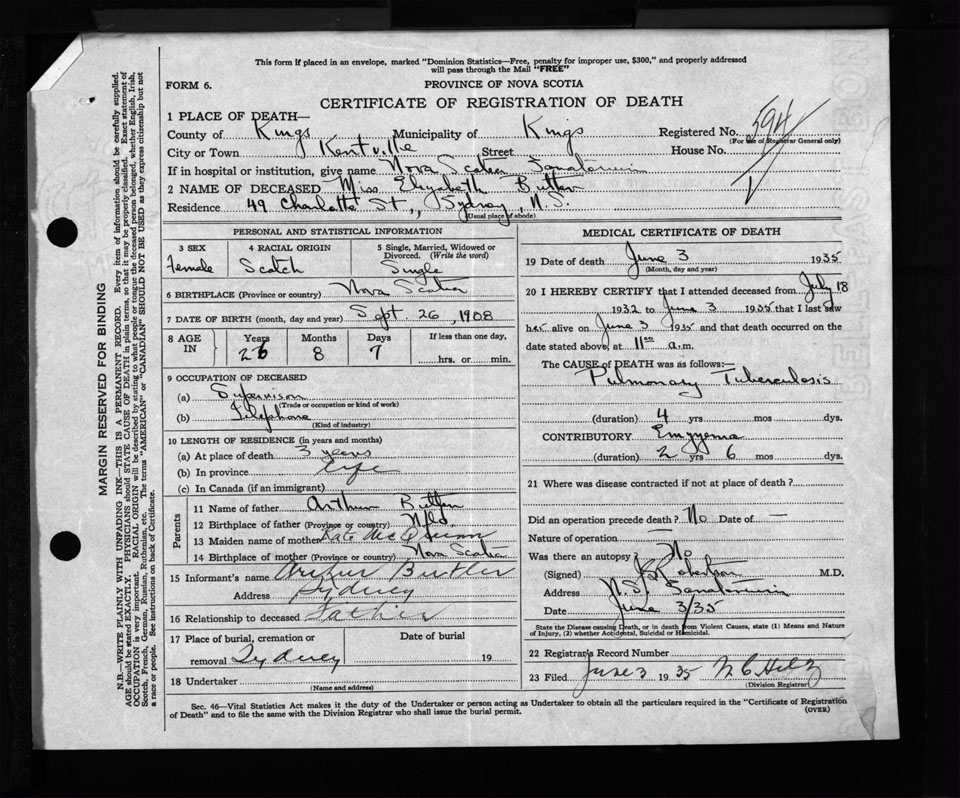 This form if placed in an envelope, marked "Dominion Statistics—Free, penalty for improper use, $300," and properly addressed
will pass through the Mail "FREE"
FORM 6.
PROVINCE OF NOVA SCOTIA
CERTIFICATE OF REGISTRATION OF DEATH
1 PLACE OF DEATH—
County of Kings Municipality of Kings Registered No. 594
(For use of Registrar General only)
City or Town Kentville Street House No.
If in hospital or institution, give name Nova Scotia Sanatorium
2 NAME OF DECEASED Miss Elizabeth Butler
Residence 49 Charlotte St., Sydney, N.S.
(Usual place of abode)
PERSONAL AND STATISTICAL INFORMATION
3 SEX 4 RACIAL ORIGIN 5 Single, Married, Widowed or
Divorced. (Write the word)
Female Scotch Single
6 BIRTHPLACE (Province or country) Nova Scotia
7 DATE OF BIRTH (month, day and year) Sept. 26, 1908
8 AGE IN Years Months Days If less than one day,
26 8 7 hrs. or min.
9 OCCUPATION OF DECEASED
(a) Supervisor
(Trade or occupation or kind of work)
(b) Telephone
(Kind of industry)
10 LENGTH OF RESIDENCE (in years and months)
(a) At place of death 3 years
(b) In province Life
(c) In Canada (if an immigrant)
Parents
11 Name of father Arthur Butler
12 Birthplace of father (Province or country) Nfld.
13 Maiden name of mother Kate
14 Birthplace of mother (Province or country) Nova Scotia
15 Informant's name Arthur Butler
Address Sydney
16 Relationship to deceased Father
17 Place of burial, cremation or Date of burial
removal Sydney 19
18 Undertaker
(Name and address)
MEDICAL CERTIFICATE OF DEATH
19 Date of death June 3 1935
(Month, day and year)
20 I HEREBY CERTIFY that I attended deceased from July 18
1932 to June 3 1935 that I last saw
her alive on June 3 1935 and that death occurred on
date stated above, at 11 00 a.m.
The CAUSE of DEATH was as follows:—
Pulmonary Tuberculosis
(duration) 4 yrs mos dys.
CONTRIBUTORY Empyema
(duration) 2 yrs 6 mos dys.
21 Where was disease contracted if not at place of death?
Did an operation precede death? No Date of —
Nature of operation
Was there an autopsy? No
(Signed) Robertson M.D.
Address N.S. Sanatorium
Date June 3/35
State the Disease causing Death, or in death from Violent Causes, state (1) Means and Nature
of Injury, (2) whether Accidental, Suicidal or Homicidal.
22 Registrar's Record Number
23 Filed June 3 1935
(Division Registrar)
Sec. 46—Vital Statistics Act makes it the duty of the Undertaker or person acting as Undertaker to obtain all the particulars required in the "Certificate of Registration
of Death" and to file the same with the Division Registrar who shall issue the burial permit.
(OVER)
MARGIN RESERVED FOR BINDING
N.B.—WRITE PLAINLY WITH UNFADING INK—THIS IS A PERMANENT RECORD. Every item of information should be carefully supplied.
AGE should be stated EXACTLY. PHYSICIANS should STATE CAUSE OF DEATH in plain terms, so that it may be properly classified. Exact statement of
OCCUPATION is very important. RACIAL ORIGIN will be described by stating to what people or tongue the deceased person belonged, whether English, Irish,
Scotch, French, German, Russian, Ruthenian, etc. The terms "AMERICAN" or "CANADIAN" SHOULD NOT BE USED as they express citizenship but not
a race or people. See instructions on back of Certificate.